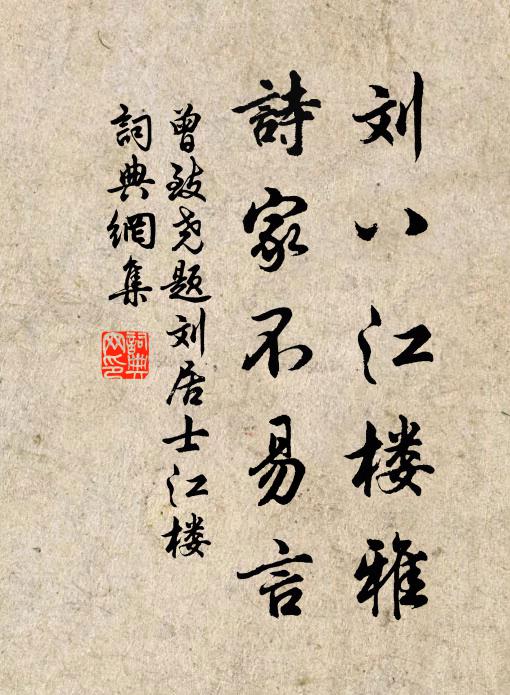 刘八江楼雅
詩家不易言
曾致尧题刘居士江楼
詞典網集
詞典
网印